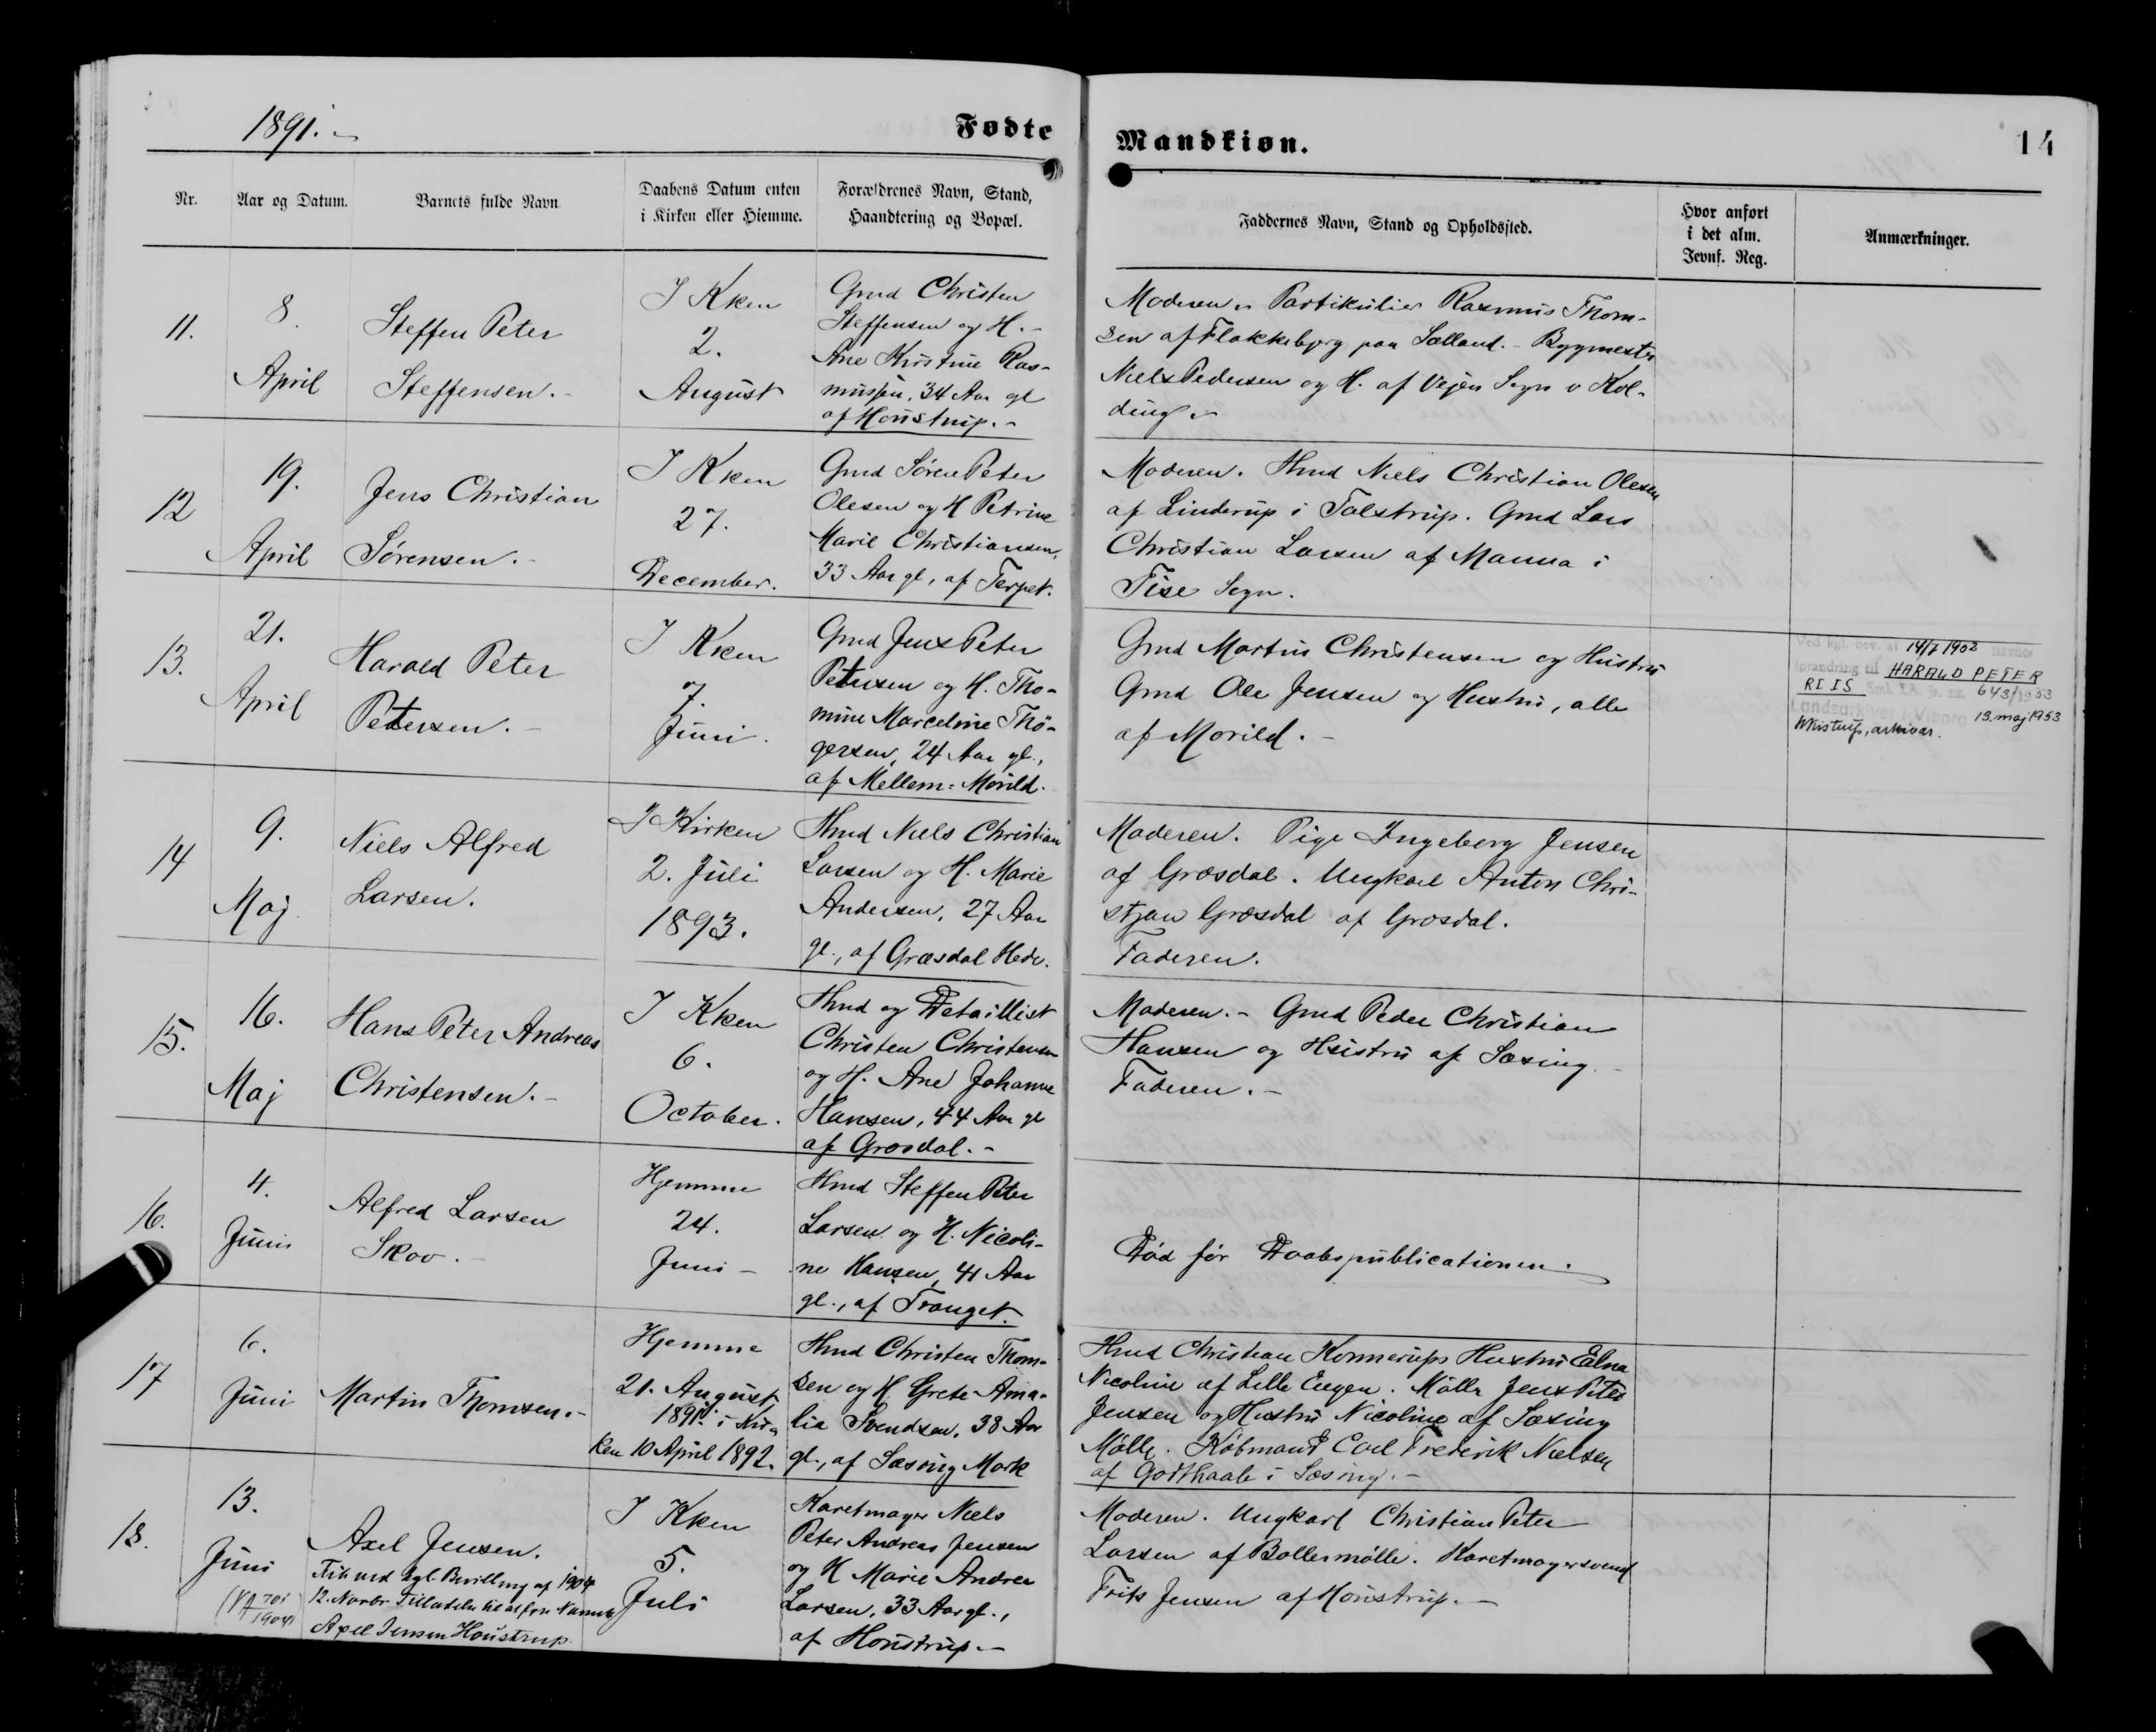 1891.
Fødte
Mandkiøn.
14
Nr.
Aar og Datum.
Barnets fulde Navn
Daabens Datum enten
i Kirken eller Hiemme.
Forældrenes Navn, Stand,
Haandtering og Bopæl.
Faddernes Navn, Stand og Opholdssted.
Hvor anført
i det alm.
Jevnf. Reg.
Anmærkninger.
11.
8.
April
Steffen Peter
Steffensen.-
I Kken
2.
August
Gmd Christen
Steffensen og H.-
Ane Kirstine Ras-
mussen, 34 Aar gl
af Houstrup.-
Moderen. Partikulier Rasmus Thom-
sen af Flakkebjerg paa Sælland.- Bygmester
Niels Pedersen og H. af Vejen Sogn v Kol-
ding.-
12
19.
April
Jens Christian
Sørensen.-
I Kken
27.
December.
Gmd Søren Peter
Olesen og H Petrine
Marie Christiansen,
33 Aar gl, af Terpet.
Moderen. Hmd Niels Christian Olesen
af Linderup i Tolstrup. Gmd Lars
Christian Larsen af Manna i
Tise Sogn.
13.
21.
April
Harald Peter
Petersen.-
I Kken
7.
Juni.
Gmd Jens Peter
Petersen og H. Tho-
mine Marceline Thö-
gersen, 24 Aar gl.,
af Mellem-Morild.
Gmd Martin Christensen og Hustru
Gmd Ole Jensen og Hustru, alle
af Morild.-
Ved kgl. bev. af 14/7 1902 navne
forandring til HARALD PETER
RIIS Sml. jr. nr. 643/1953
Landsarkivet i Viborg 19. maj 1953
arkivar.
14
9.
Maj
Niels Alfred
Larsen.
I Kirken
2. Juli
1893.
Hmd Niels Christian
Larsen og H. Marie
Andersen, 27 Aar
gl., af Græsdal Hede.
Moderen. Pige Ingeborg Jensen
af Græsdal. Ungkarl Anton Chri-
stjan Græsdal af Græsdal.
Faderen.
15.
16.
Maj
Hans Peter Andreas
Christensen.-
I Kken
6.
October.
Hmd og Detaillist
Christen Christensen
og H. Ane Johanne
Hansen, 44 Aar gl
af Græsdal.-
Moderen.- Gmd Peder Christian
Hansen og Hustru af Sæsing.-
Faderen.-
16.
4.
Juni
Alfred Larsen
Skov.-
Hjemme
24.
Juni-
Hmd Steffen Peter
Larsen og H. Nicoli-
ne Hansen, 41 Aar
gl., af Tranget.
Död för Daabspublicationen.
17
6.
Juni
Martin Thomsen.-
Hjemme
21. August
1891. i Kir-
ken 10 April 1892.
Hmd Christen Thom-
sen og H. Grete Ama-
lia Svendsen, 38 Aar
gl., af Sæsing Mark
Hmd Christian Konnerups Hustru Edna
Nicoline af Lille Engen. Mölle Jens Peter
Jensen og Hustru Nicoline af Sæsing
Mölle. Köbmand Carl Frederik Nielsen
af Godthaab i Sæsing.-
18.
13.
Juni
Axel Jensen.
Fik ved kgl. Bevilling af 1904
12. Novbr. Tilladelse til at före Navnet
Axel Jensen Houstrup.
I Kken
5.
Juli
Karetmager Niels
Peter Andreas Jensen
og H Marie Andrea
Larsen, 33 Aar gl.,
af Houstrup.-
Moderen. Ungkarl Christian Peter
Larsen af Bollermölle. Karetmagersvend
Frits Jensen af Houstrup.-